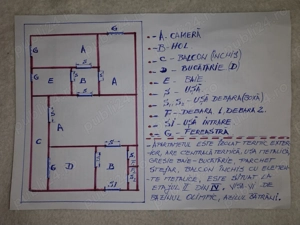 G
G A
G
G E B A
A
C
D B
G S1
A - CAMERĂ
B - HOL
C - BALCON (ÎNCHIS)
D - BUCĂTĂRIE (D)
E - BAIE
S - UȘĂ
S1, S2 - UȘĂ DEBARA
F - DEBARA 1, DEBARA 2
SI - UȘĂ INTRARE
G - FEREASTRĂ
APARTAMENTUL ESTE IZOLAT TERMIC EXTER-
IOR, ARE CENTRALĂ TERMICĂ, UȘĂ METALICĂ,
GRESIE BAIE - BUCĂTĂRIE, PARCHET
STEJAR, BALCON ÎNCHIS CU ELEMEN-
TE METALICE, ESTE SITUAT LA
ETAJUL II DIN IV, VIS A VI DE
BAZINUL OLIMPIC, AGILE BĂTRÂNI.